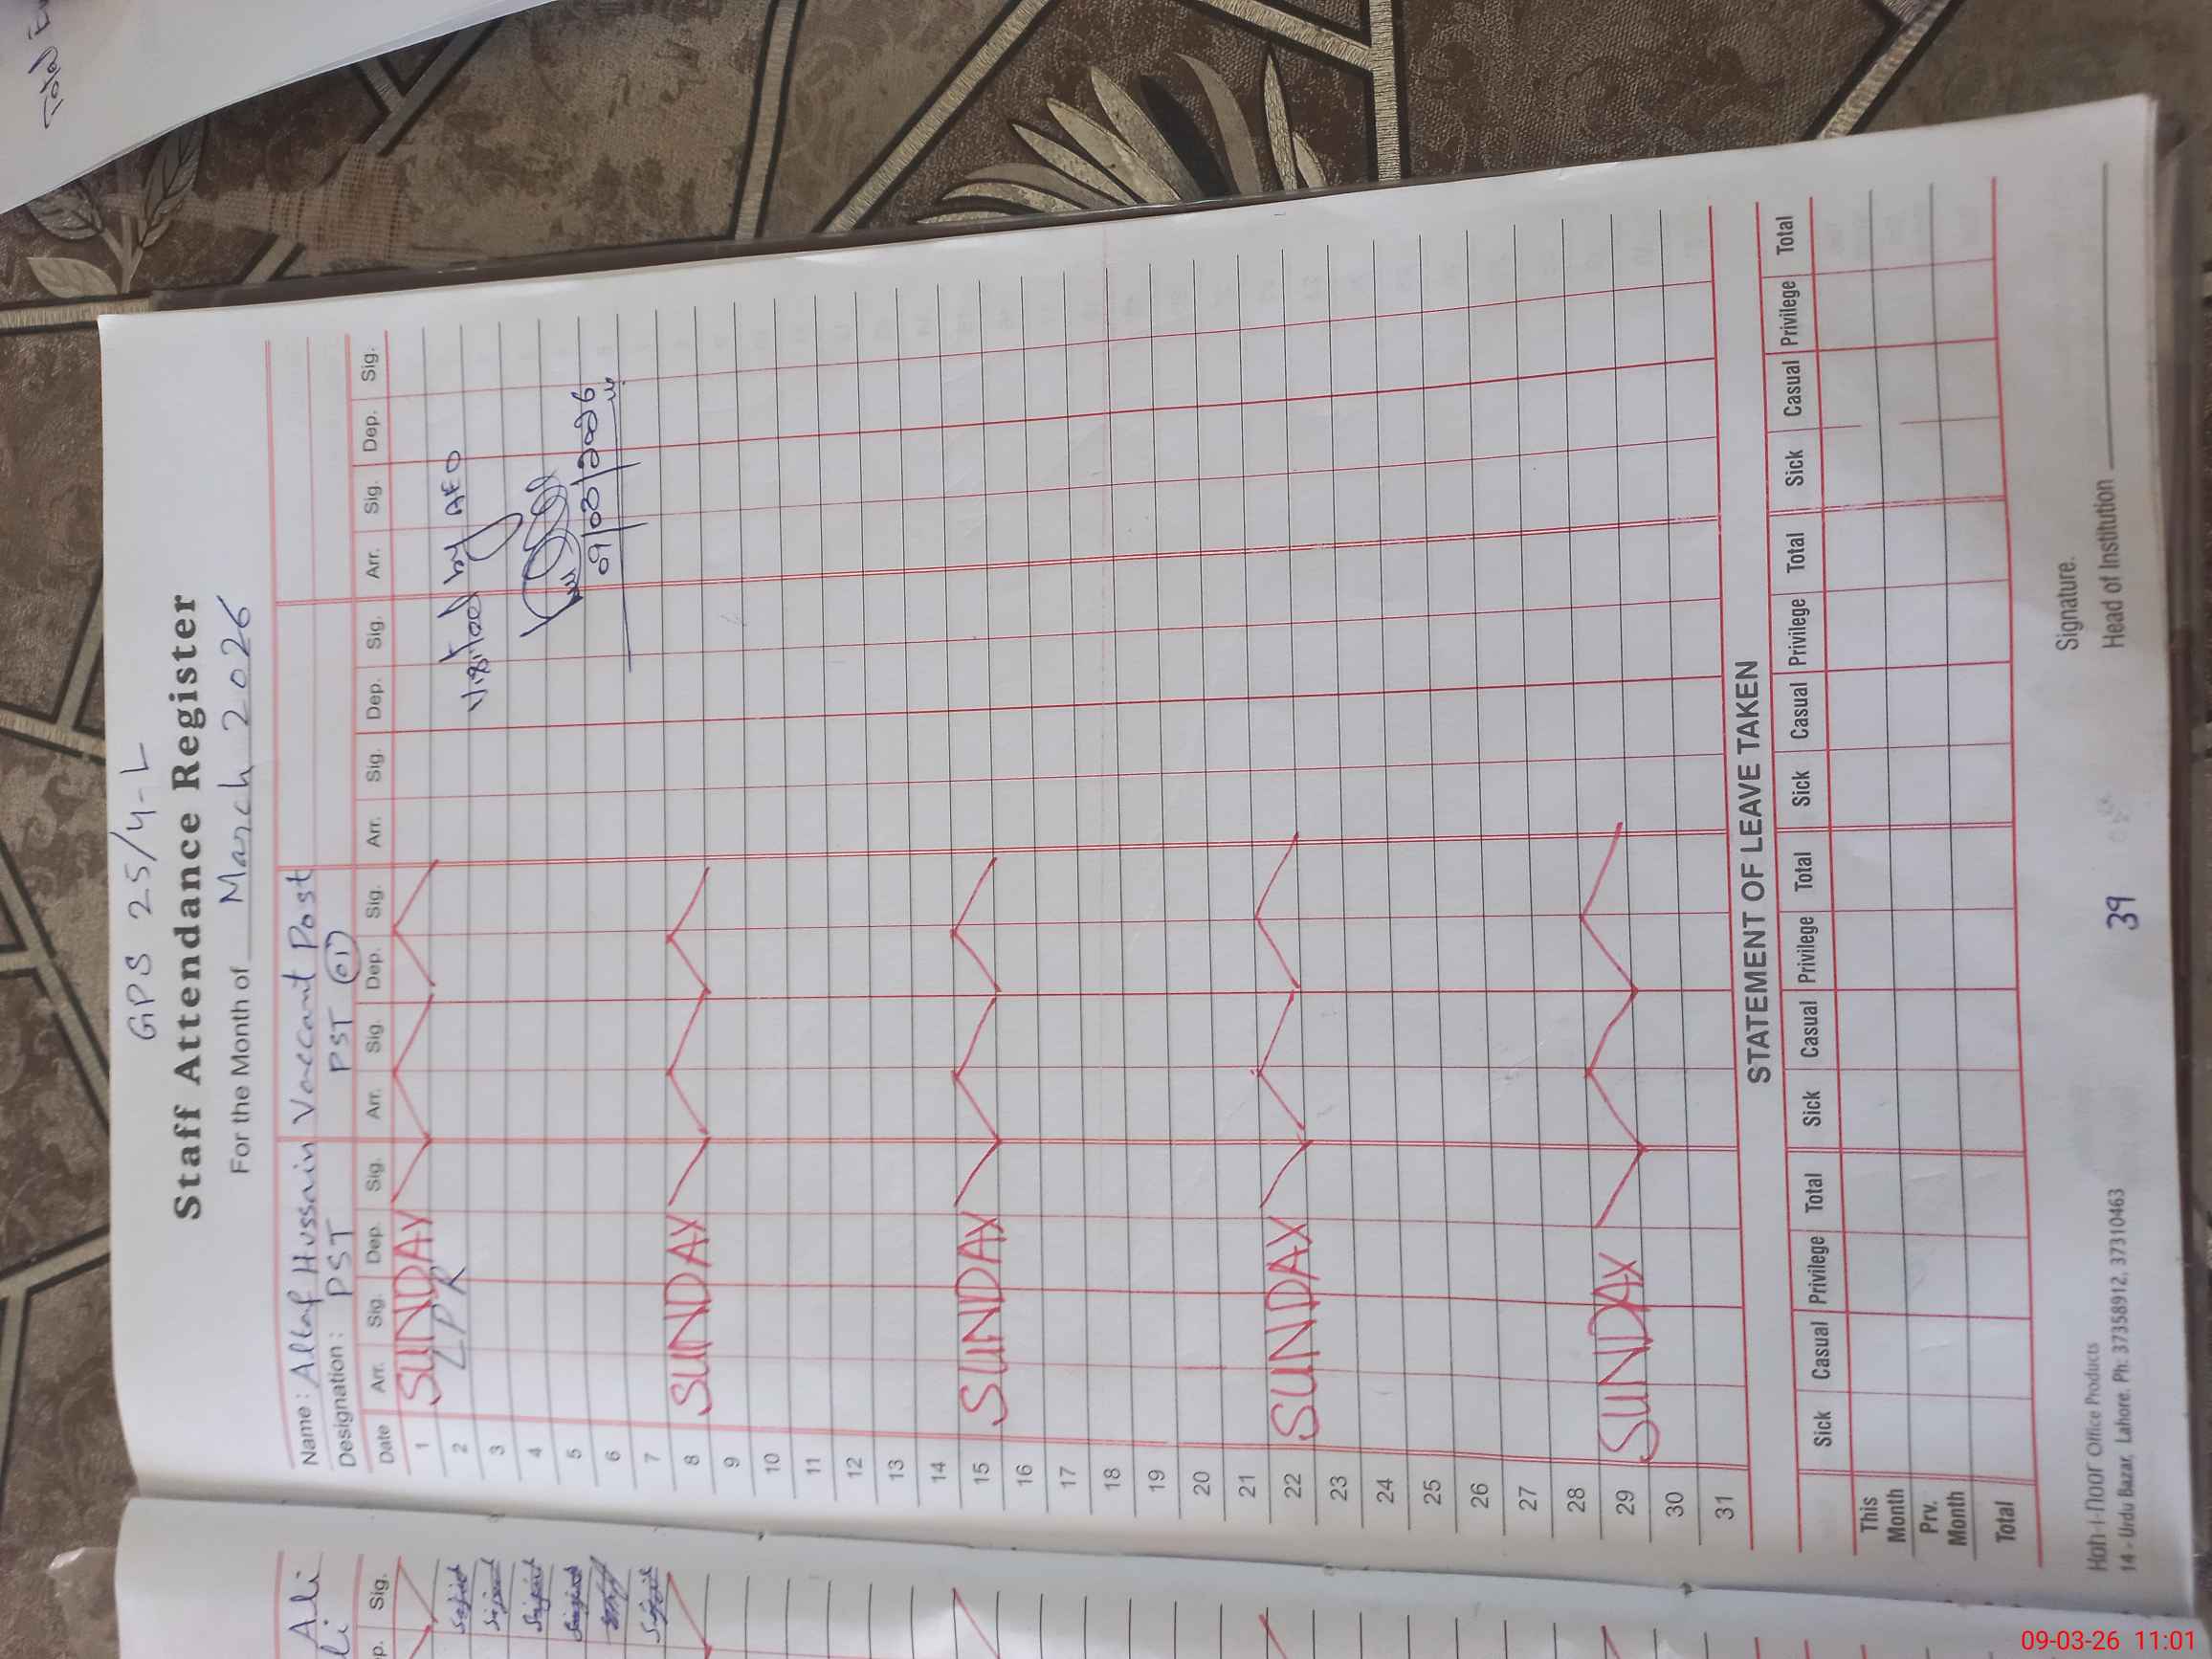 Total
GPS 25/4-L
Staff Attendance Register
For the Month of March 2026
Name : Altaf Hussain Vaccant Post
Designation : PST PST 01
Date Arr. Sig. Dep. Sig. Arr. Sig. Dep. Sig. Arr. Sig. Dep. Sig. Arr. Sig. Dep. Sig.
1 SUNDAY
2 LPR Visited by AEO
3
4
5 09/03/2026
6
7
8 SUNDAY
9
10
11
12
13
14
15 SUNDAY
16
17
18
19
20
21
22 SUNDAY
23
24
25
26
27
28
29 SUNDAY
30
31
STATEMENT OF LEAVE TAKEN
Sick Casual Privilege Total Sick Casual Privilege Total Sick Casual Privilege Total Sick Casual Privilege Total
This Month
Prv. Month
Total
Signature.
Head of Institution
Koh-I-Noor Office Products
14 - Urdu Bazar, Lahore. Ph: 37358912, 37310463
39
Ali
p. Sig.
Sajid
Sajid
Sajid
Sajid
Sajid
09-03-26 11:01